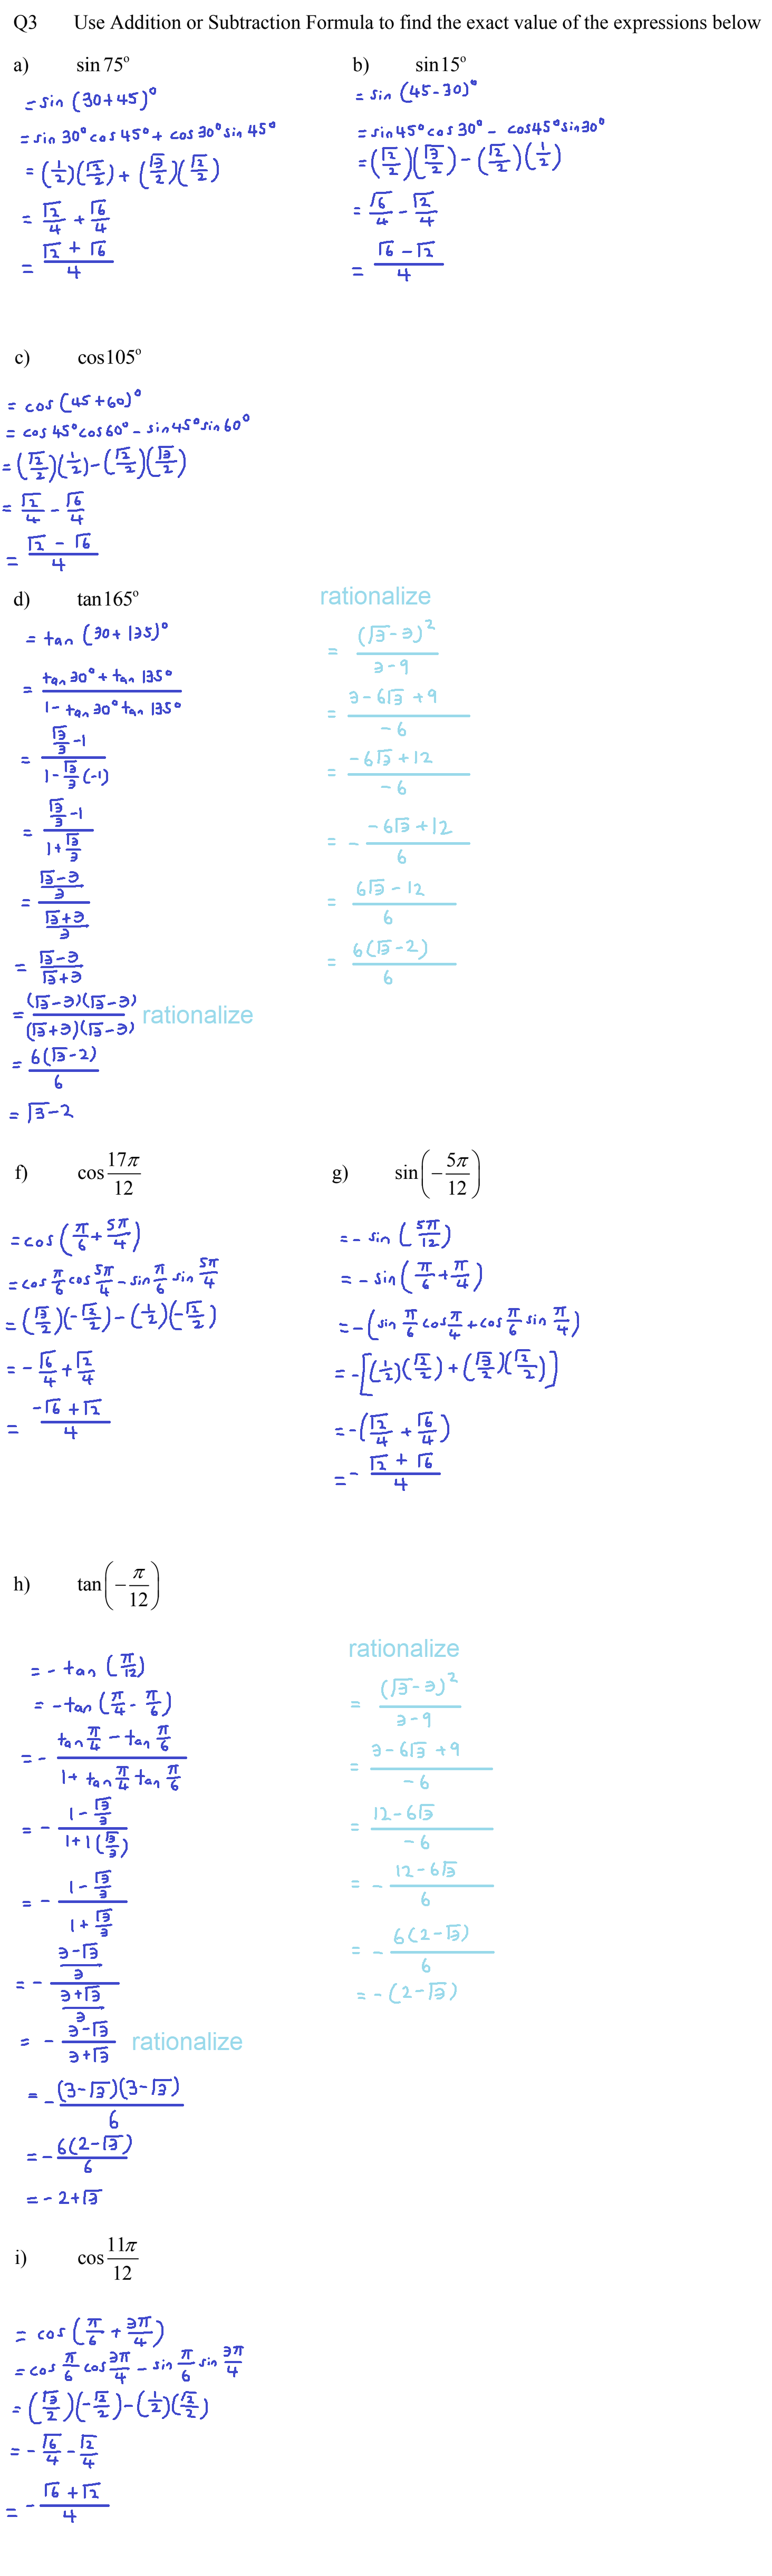 Q3 Use Addition or Subtraction Formula to find the exact value of the expressions below
a) sin 75°
= sin (30+45)°
= sin 30° cos 45° + cos 30° sin 45°
= (1/2)(√2/2) + (√3/2)(√2/2)
= √2/4 + √6/4
= (√2 + √6)/4
b) sin 15°
= sin (45-30)°
= sin 45° cos 30° - cos 45° sin 30°
= (√2/2)(√3/2) - (√2/2)(1/2)
= √6/4 - √2/4
= (√6 - √2)/4
c) cos 105°
= cos (45+60)°
= cos 45° cos 60° - sin 45° sin 60°
= (√2/2)(1/2) - (√2/2)(√3/2)
= √2/4 - √6/4
= (√2 - √6)/4
d) tan 165°
= tan (30+135)°
= (tan 30° + tan 135°)/(1 - tan 30° tan 135°)
= (√3/3 - 1)/(1 - √3/3 (-1))
= (√3/3 - 1)/(1 + √3/3)
= ((√3-3)/3)/((√3+3)/3)
= (√3-3)/(√3+3)
= (√3-3)(√3-3)/(√3+3)(√3-3) rationalize
= 6(√3-2)/6
= √3-2
rationalize
= (√3-3)²/(3-9)
= (3-6√3+9)/-6
= (-6√3+12)/-6
= - (-6√3+12)/6
= (6√3-12)/6
= 6(√3-2)/6
f) cos 17π/12
= cos (π/6 + 5π/4)
= cos π/6 cos 5π/4 - sin π/6 sin 5π/4
= (√3/2)(-√2/2) - (1/2)(-√2/2)
= -√6/4 + √2/4
= (-√6 + √2)/4
g) sin(-5π/12)
= - sin (5π/12)
= - sin (π/6 + π/4)
= -(sin π/6 cos π/4 + cos π/6 sin π/4)
= -[(1/2)(√2/2) + (√3/2)(√2/2)]
= -(√2/4 + √6/4)
= - (√2 + √6)/4
h) tan(-π/12)
= - tan (π/12)
= - tan (π/4 - π/6)
= - (tan π/4 - tan π/6)/(1 + tan π/4 tan π/6)
= - (1 - √3/3)/(1+1(√3/3))
= - (1 - √3/3)/(1 + √3/3)
= - ((3-√3)/3)/((3+√3)/3)
= - (3-√3)/(3+√3) rationalize
= - (3-√3)(3-√3)/6
= - 6(2-√3)/6
= - 2+√3
rationalize
= (√3-3)²/(3-9)
= (3-6√3+9)/-6
= (12-6√3)/-6
= - (12-6√3)/6
= - 6(2-√3)/6
= - (2-√3)
i) cos 11π/12
= cos (π/6 + 3π/4)
= cos π/6 cos 3π/4 - sin π/6 sin 3π/4
= (√3/2)(-√2/2) - (1/2)(√2/2)
= - √6/4 - √2/4
= - (√6 + √2)/4